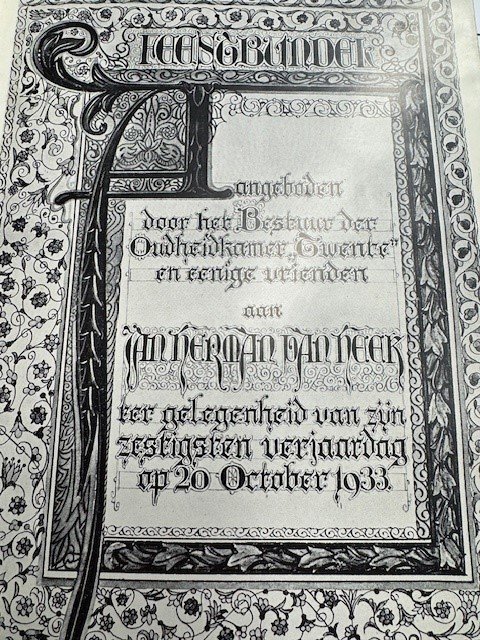 FEESTBUNDEL
Aangeboden
door het Bestuur der
Oudheidkamer „Twente"
en eenige vrienden
aan
JAN HERMAN VAN HEEK
ter gelegenheid van zijn
zestigsten verjaardag
op 20 October 1933.